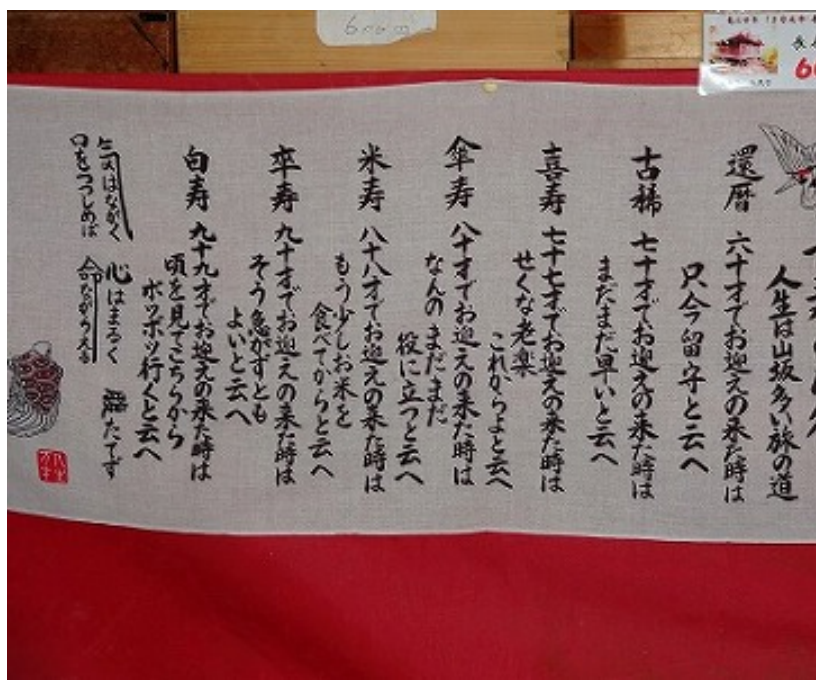 人生は山坂多い旅の道
還暦 六十才でお迎えの来た時は
只今留守と云へ
古稀 七十才でお迎えの来た時は
まだまだ早いと云へ
喜寿 七十七才でお迎えの来た時は
せくな老楽
これからよと云へ
傘寿 八十才でお迎えの来た時は
なんの まだまだ
役に立つと云へ
米寿 八十八才でお迎えの来た時は
もう少しお米を
食べてからと云へ
卒寿 九十才でお迎えの来た時は
そう急がずとも
よいと云へ
白寿 九十九才でお迎えの来た時は
頃を見てこちらから
ボツボツ行くと云へ
気はながく 心はまるく たてず
口をつつしめば 命ながらえる